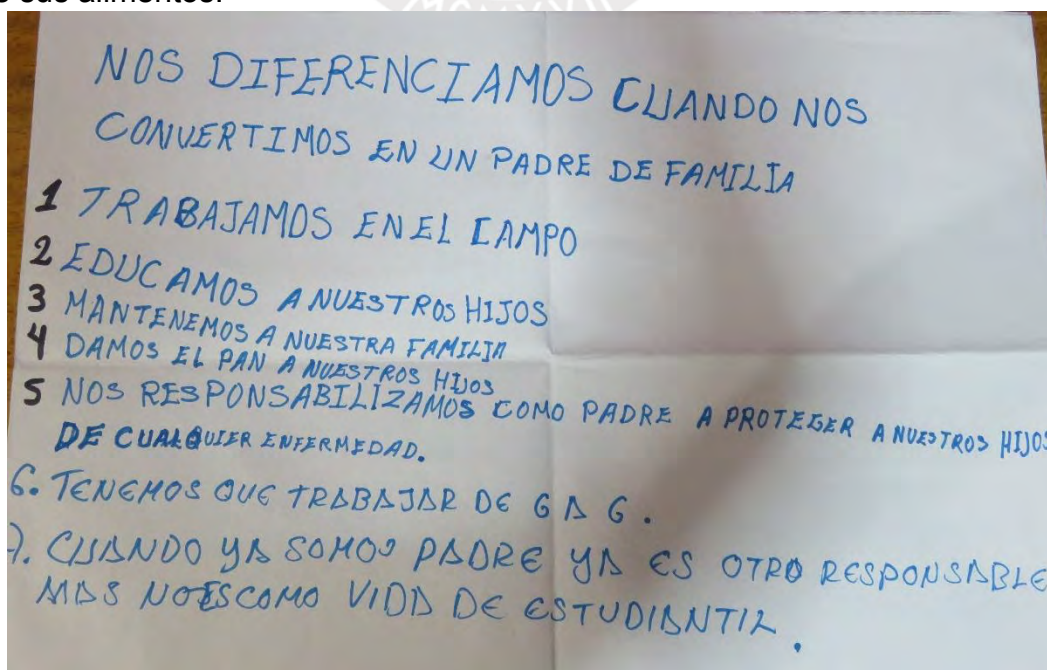 o sus alimentos.
NOS DIFERENCIAMOS CUANDO NOS
CONVERTIMOS EN UN PADRE DE FAMILIA
1 TRABAJAMOS EN EL CAMPO
2 EDUCAMOS A NUESTROS HIJOS
3 MANTENEMOS A NUESTRA FAMILIA
4 DAMOS EL PAN A NUESTROS HIJOS
5 NOS RESPONSABILIZAMOS COMO PADRE A PROTEGER A NUESTROS HIJOS
DE CUALQUIER ENFERMEDAD.
6. TENEMOS QUE TRABAJAR DE 6 A 6.
7. CUANDO YA SOMOS PADRE YA ES OTRO RESPONSABLE
MAS NO ES COMO VIDA DE ESTUDIANTIL.